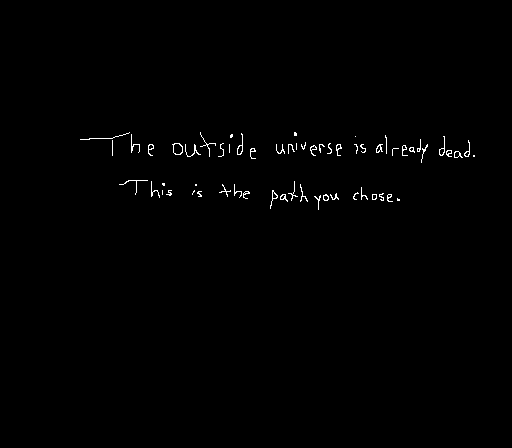 The outside universe is already dead.
This is the path you chose.